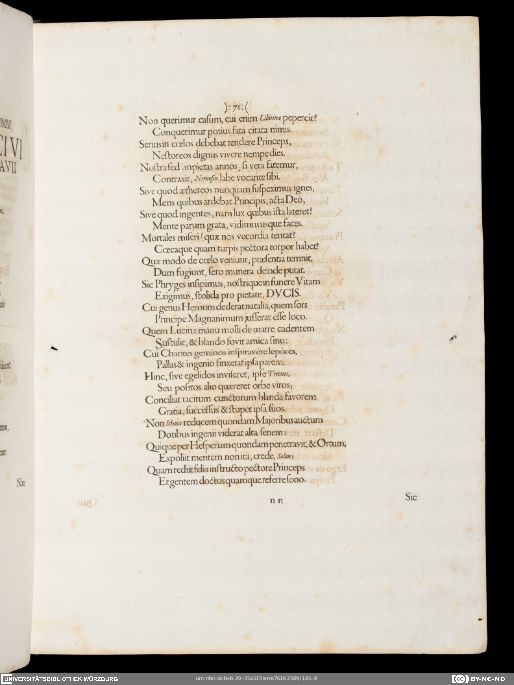 ):71:(
Non querimur casum, cui enim Libitina pepercit?
Conquerimur potius fata citata nimis.
Serius in cœlos debebat tendere Princeps,
Nestoreos dignus vivere nempe dies.
Nostra sed impietas annos, si vera fatemur,
Contraxit, Nemesin labe vocante sibi.
Sive quod æthereos nunquam suspeximus ignes,
Mens quibus ardebat Principis, acta Deo,
Sive quod ingentes, nam lux quibus ista lateret?
Mente parum grata, vidimus usque faces.
Mortales miseri! quæ nos vecordia tentat?
Cœcaque quam turpis pectora torpor habet?
Quæ modo de cœlo veniunt, præsentia temnit,
Dum fugiunt, sero munera deinde putat.
Sic Phryges insipimus, nostrique in funere Vitam
Exigimus, stolida pro pietate, DVCIS.
Cui genus Heroum dederat natalia, quem sors
Principe Magnanimum jusserat esse loco.
Quem Lucina manu molli de matre cadentem
Sustulit, & blando fovit amica sinu:
Cui Charites geminos inspiravere lepores,
Pallas & ingenio finxerat ipsa parem:
Hinc, sive egelidos inviseret, ipse Triones,
Seu positos alio quæreret orbe viros,
Conciliat tacitum cunctorum blinda favorem
Gratia, successus & stupet ipsa suos.
Non reducem quondam Majoribus auctum
Dotibus ingenii viderat alta senem:
Quique per Hesperiam quondam penetravit, & Ortum,
Expoliit mentem non ita, crede, Solon:
Quam rediit felix instructo pectore Princeps
Et gentem doctus quamque referre sono.
n n
Sic
UNIVERSITÄTSBIBLIOTHEK WÜRZBURG
BY-NC-ND